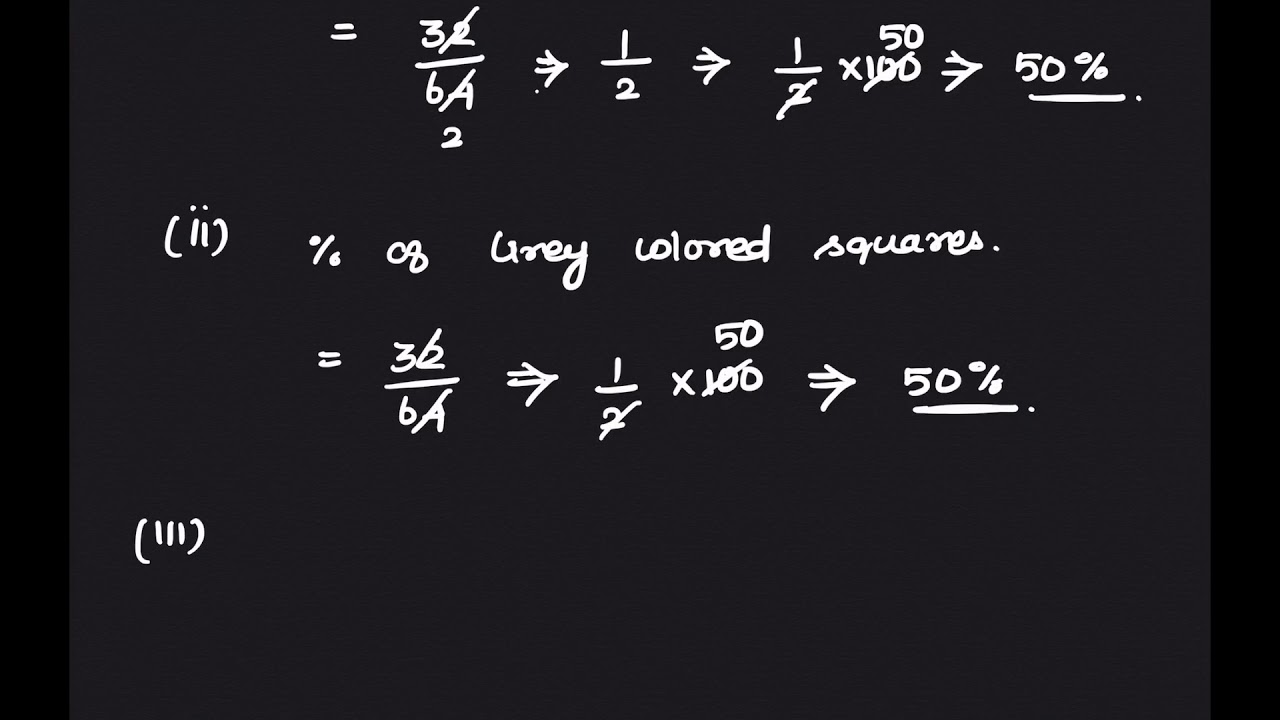 = 32/64 ⇒ 1/2 ⇒ 1/2 ×100 ⇒ 50%.
50
2
(ii) % of Grey colored squares.
50
= 32/64 ⇒ 1/2 ×100 ⇒ 50%.
(III)